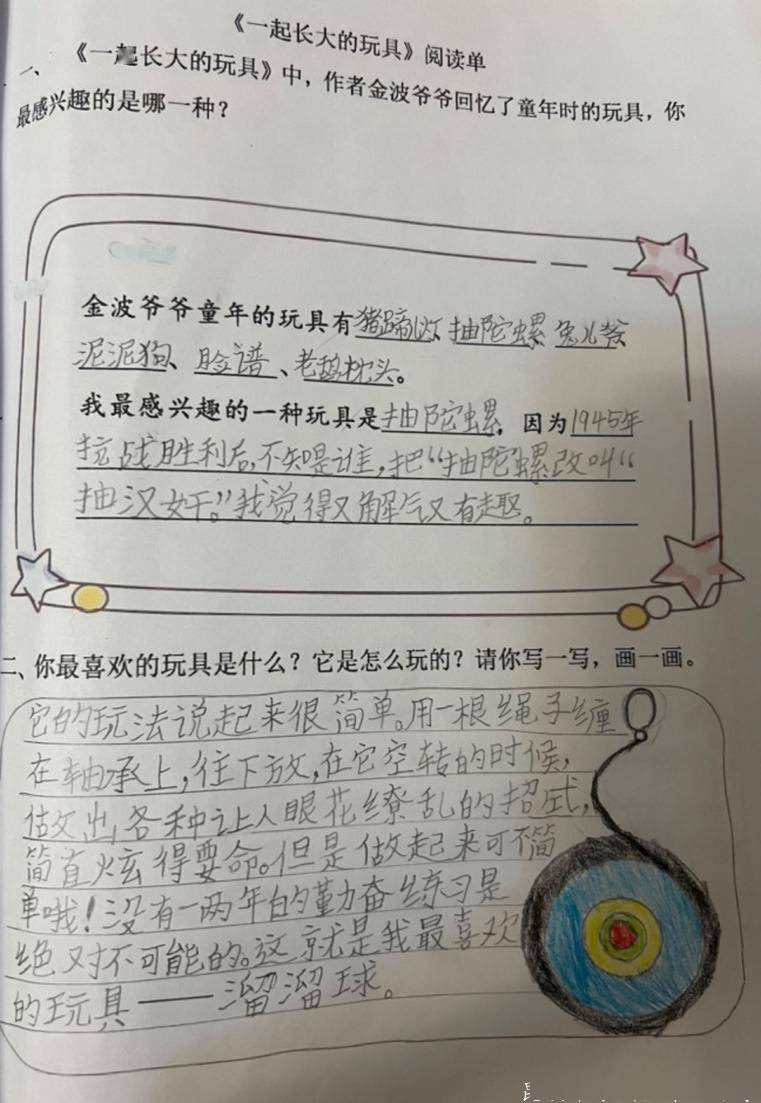 《一起长大的玩具》阅读单
一、《一起长大的玩具》中，作者金波爷爷回忆了童年时的玩具，你
最感兴趣的是哪一种？
金波爷爷童年的玩具有猪蹄儿灯、抽陀螺、兔儿爷、
泥泥狗、脸谱、老鸹枕头。
我最感兴趣的一种玩具是抽陀螺，因为1945年
抗战胜利后，不知是谁，把“抽陀螺改叫“
抽汉奸。”我觉得又解气又有趣。
二、你最喜欢的玩具是什么？它是怎么玩的？请你写一写，画一画。
它的玩法说起来很简单。用一根绳子缠
在轴承上，往下放，在它空转的时候，
做出各种让人眼花缭乱的招式，
简直炫得要命。但是做起来可不简
单哦！没有一两年的勤奋练习是
绝对不可能的。这就是我最喜欢
的玩具——溜溜球。